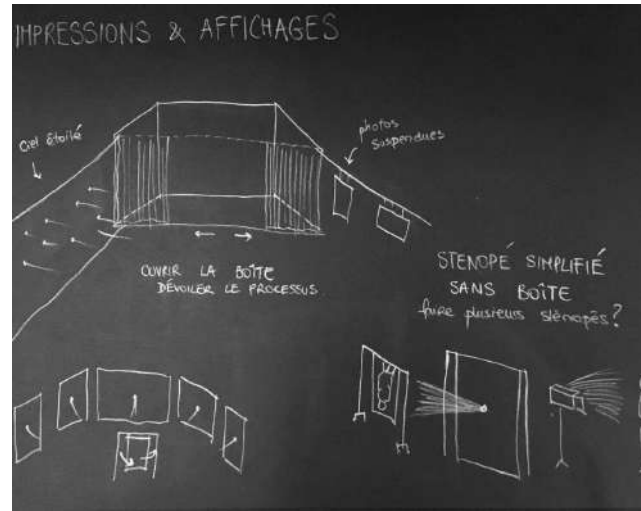 IMPRESSIONS & AFFICHAGES
Ciel étoilé
photos
suspendues
OUVRIR LA BOÎTE
DÉVOILER LE PROCESSUS.
STENOPÉ SIMPLIFIÉ
SANS BOÎTE
faire plusieurs sténopés?